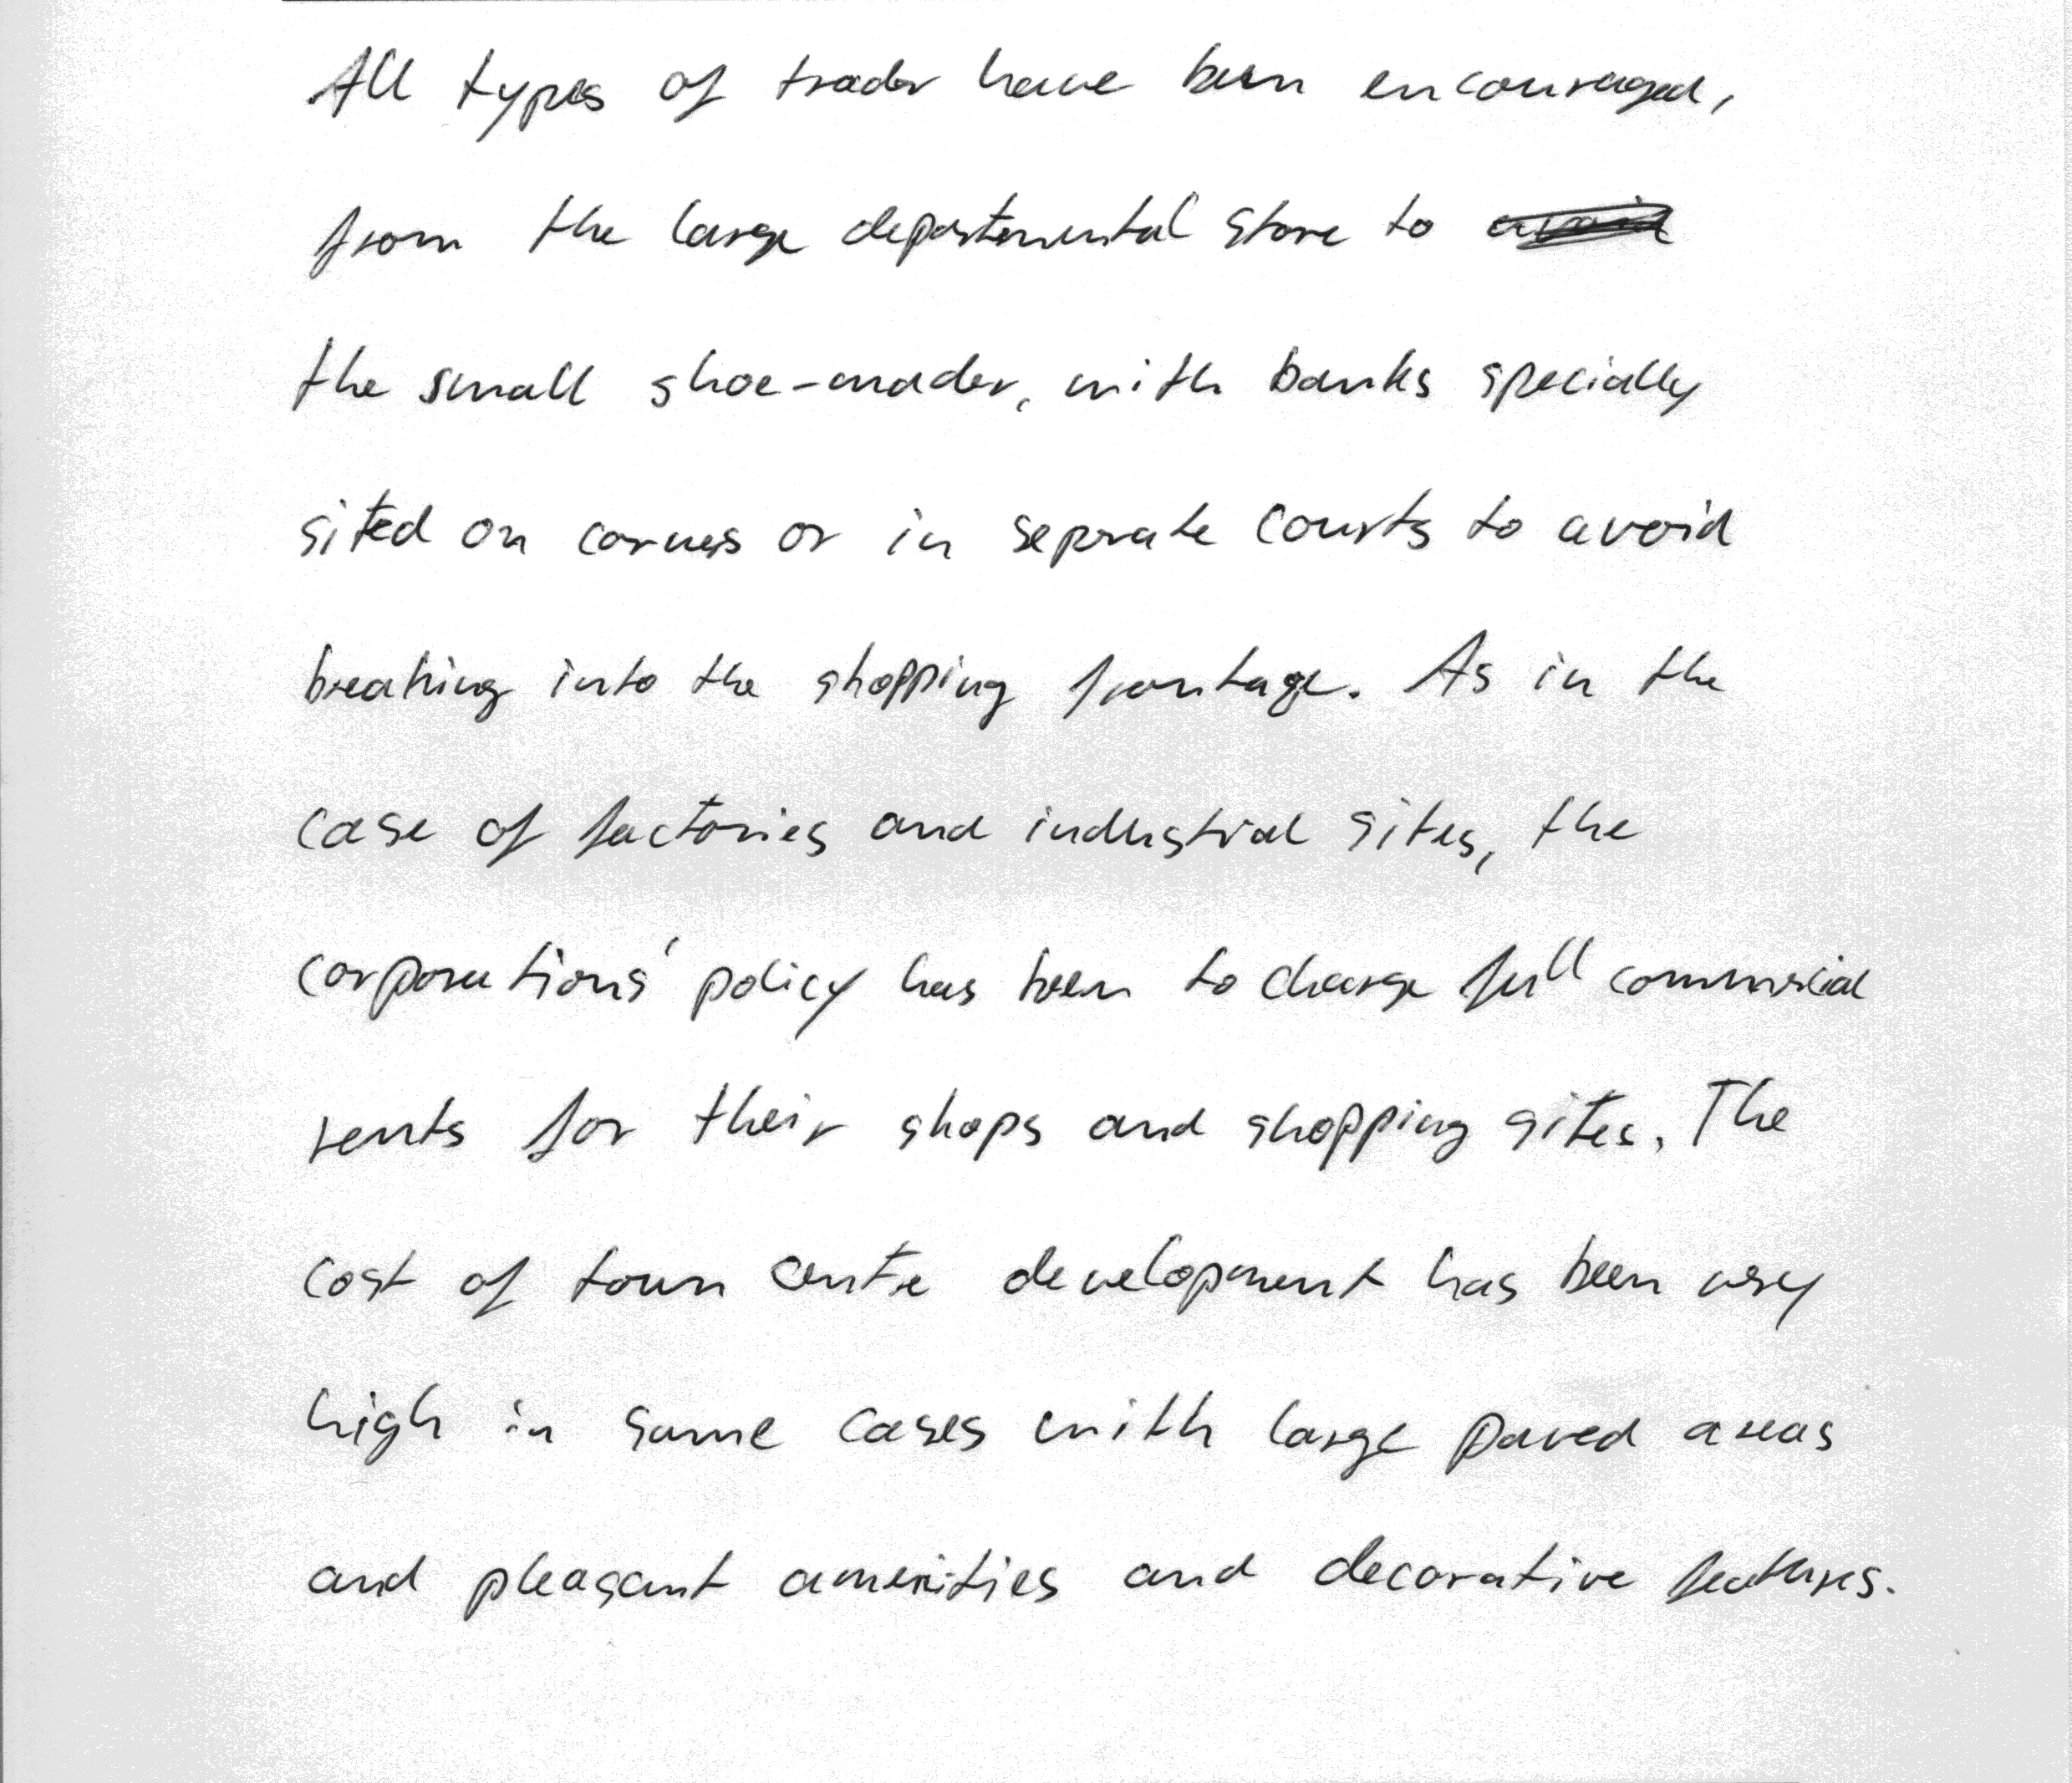 All types of trader have been encouraged,
from the large departemental store to
the small shoe-mader, with banks specially
sited on corners or in seprate courts to avoid
breaking into the shopping frontage. As in the
case of factories and industrial sites, the
corporations' policy has been to charge full commercial
rents for their shops and shopping sites. The
cost of town centre development has been very
high in some cases with large paved areas
and pleasant amenities and decorative features.